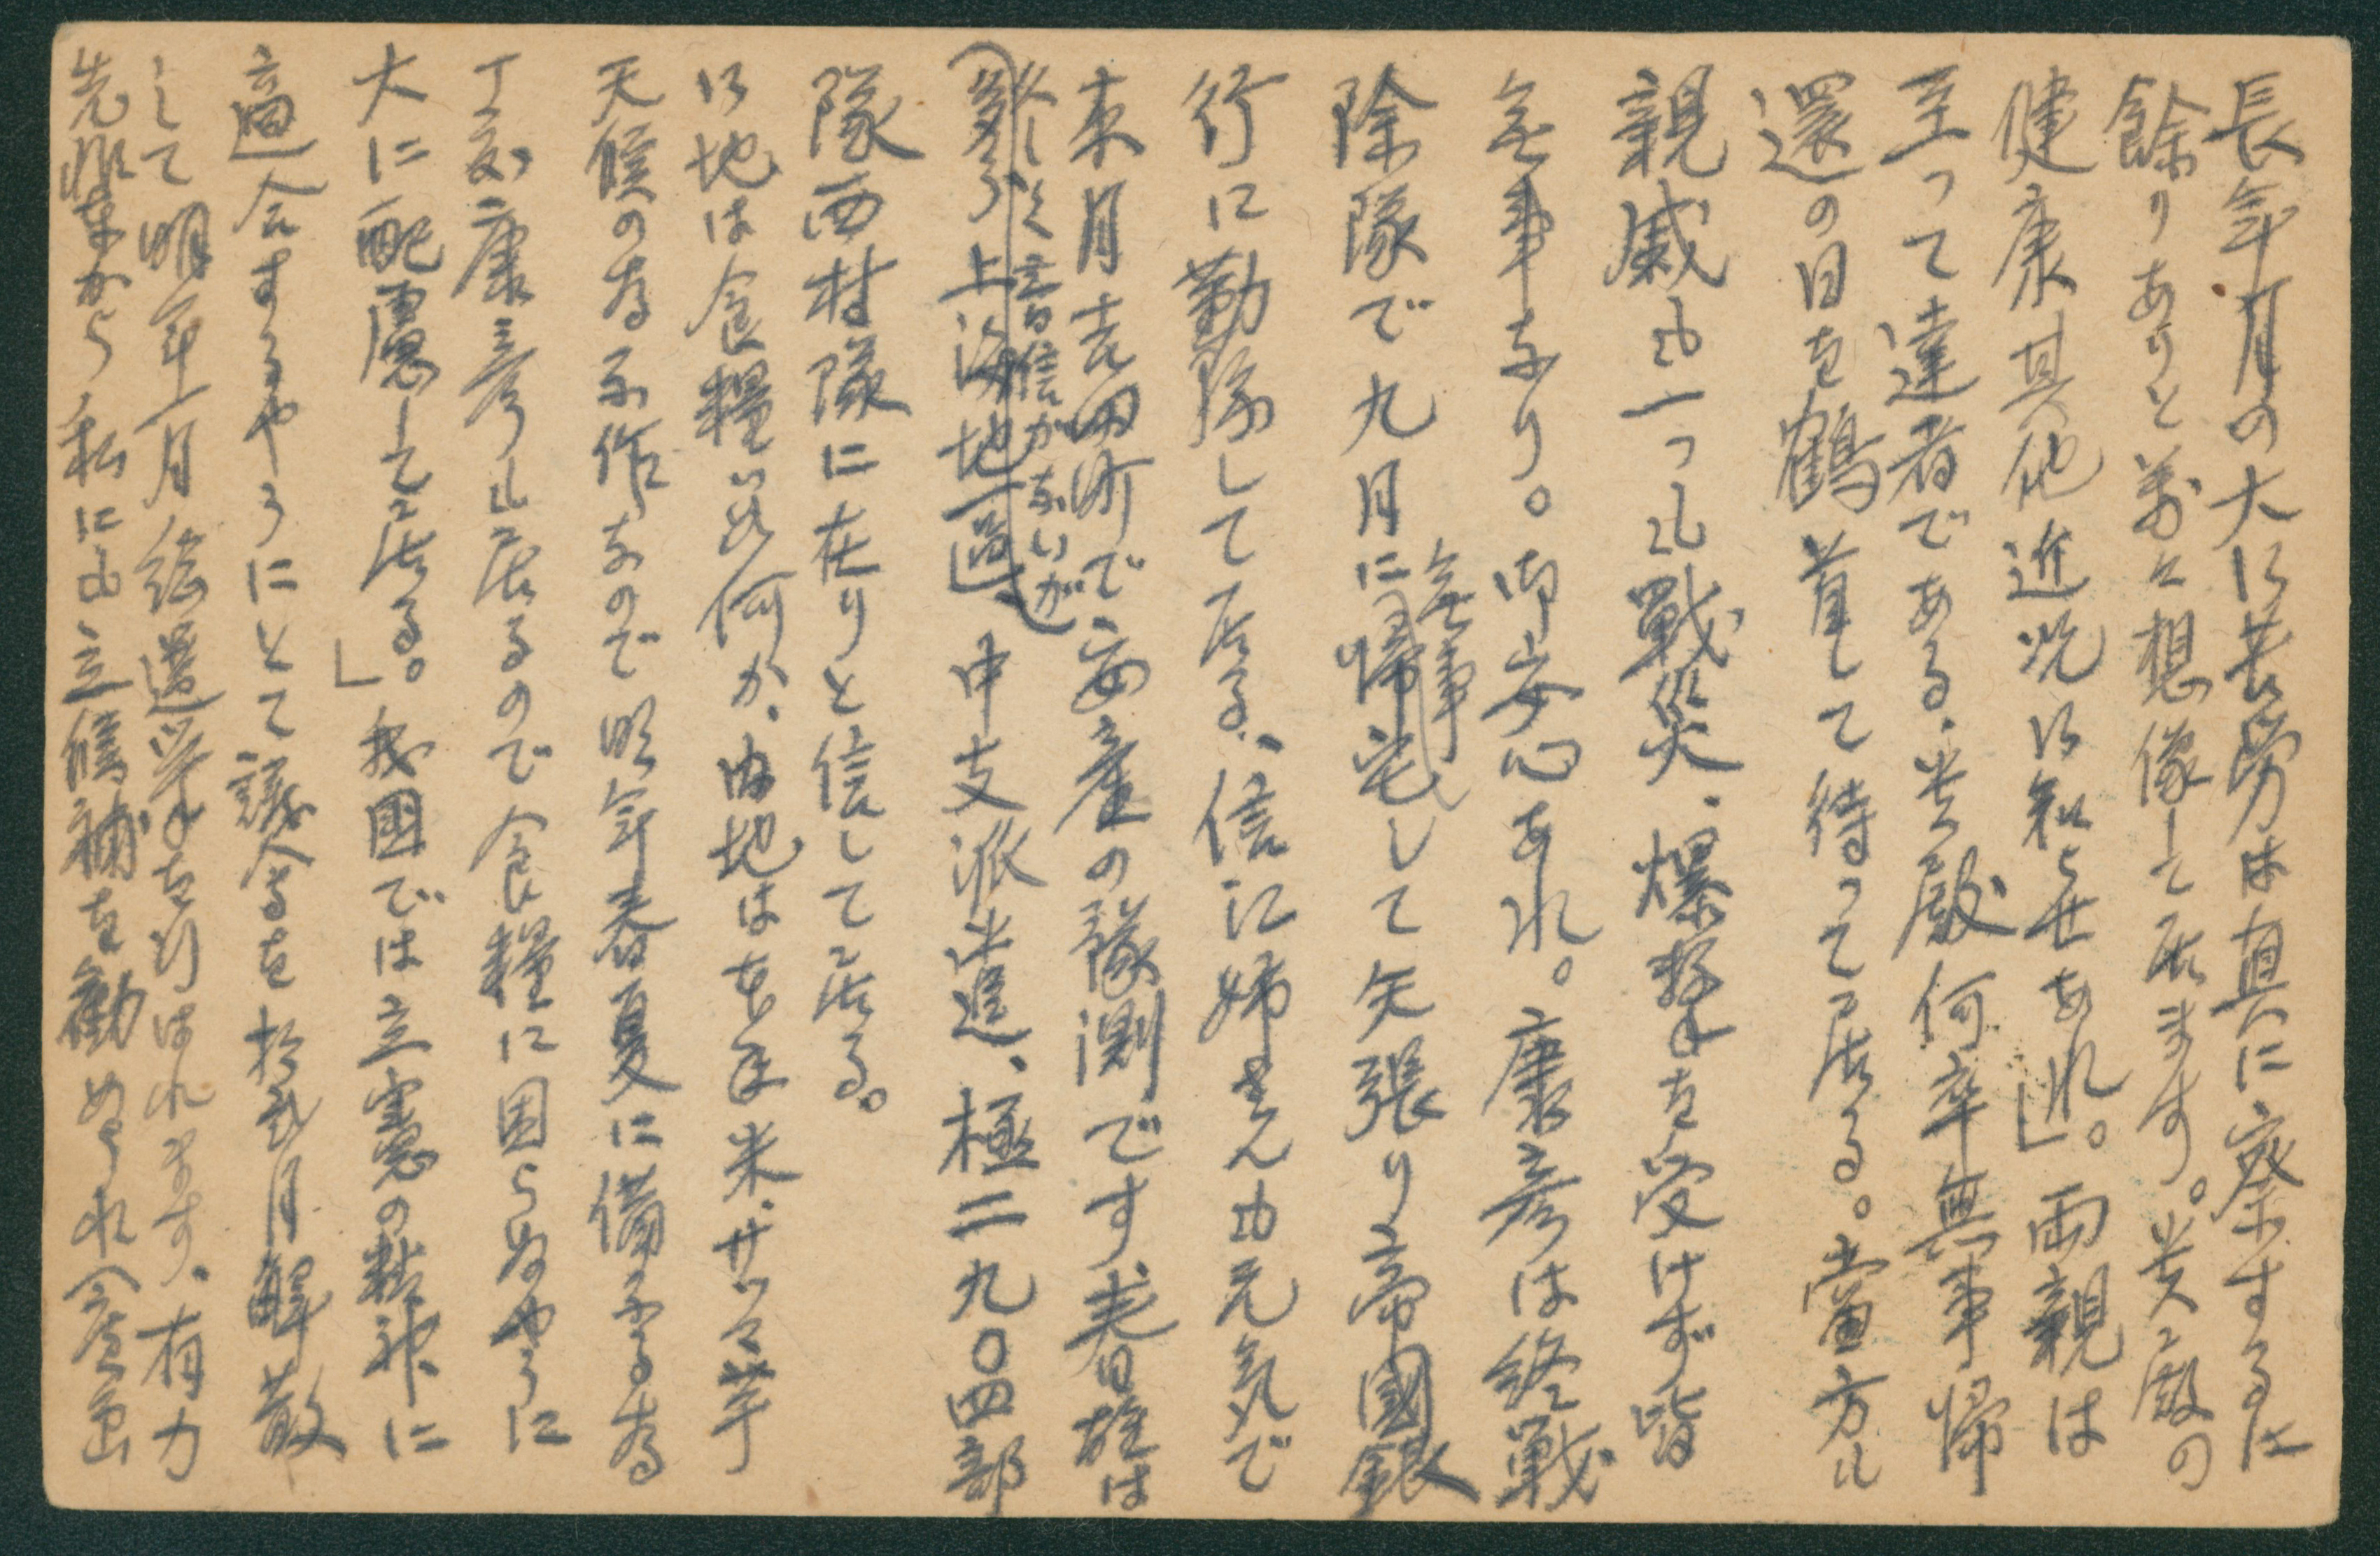 長年月の大なる苦労は真に察するに
餘りありと萬々想像して居ます。貴殿の
健康其他近況お知らせあれ」。両親は
至って達者である、貴殿何卒無事帰
還の日を鶴首して待って居る。當方ル
親戚も一つも戦災、爆撃を受けず皆
無事なり。御安心あれ。康彦は終戦
除隊で九月に無事帰宅して矢張り帝國銀
行に勤務して居る、信江姉さんも元気で
来月吉田町で安産の豫測です、春日雄は
久しく音信がないが
上海地區、中支派遣、極二九〇四部
隊西村隊に在りと信して居る。
お地は食糧は如何か、内地は本年米、サツマ芋
天候の為不作なので明年春夏に備ふる為
丁度康彦も居るので食糧に困らぬやうに
大に配慮して居る。」我国では立憲の精神に
適合するやうにとて議会を拾弐月解散
して明年一月総選挙を行はれます、有力
先輩から私にも立候補を勧めらる